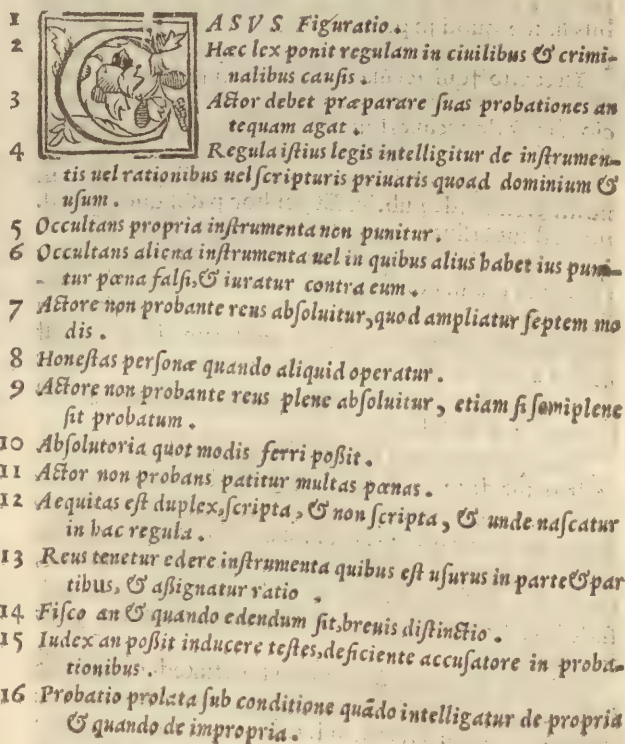 1 CASVS Figuratio.
2 Hæc lex ponit regulam in ciuilibus & crimi-
nalibus cauſis.
3 Actor debet præparare ſuas probationes an
tequam agat.
4 Regula iſtius legis intelligitur de inſtrumen-
tis uel rationibus uel ſcripturis priuatis quoad dominium &
uſum.
5 Occultans propria inſtrumenta non punitur.
6 Occultans aliena inſtrumenta uel in quibus alius habet ius puni-
tur pœna falſi, & iuratur contra eum.
7 Actore non probante reus abſoluitur, quod ampliatur ſeptem mo
dis.
8 Honeſtas perſonæ quando aliquid operatur.
9 Actore non probante reus plene abſoluitur, etiam ſi ſemiplene
ſit probatum.
10 Abſolutoria quot modis ferri poßit.
11 Actor non probans patitur multas pœnas.
12 Aequitas eſt duplex, ſcripta, & non ſcripta, & unde naſcatur
in hac regula.
13 Reus tenetur edere inſtrumenta quibus eſt uſurus in parte & par
tibus, & aßignatur ratio.
14 Fiſco an & quando edendum ſit, breuis diſtinctio.
15 Iudex an poßit inducere teſtes, deficiente accuſatore in proba-
tionibus.
16 Probatio prolata ſub conditione quãdo intelligatur de propria
& quando de impropria.